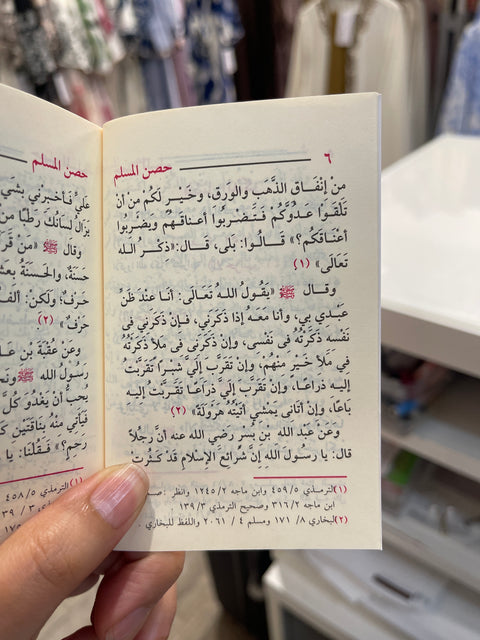 ٦ حصن المسلم
مِنْ إِنْفَاقِ الذَّهَبِ والوَرِقِ، وخَيْـرٍ لَكُمْ مِنْ أنْ
تَلْقَوْا عَدُوَّكُمْ فَتَضْرِبوُا أعناقَهُم ويَضْرِبوا
أعْنَاقَكُم؟» قَـالُـوا: بَلى، قَـال: «ذِكْرُ اللهِ
تَعَالَى» (١)
وقَـالَ ﷺ «يَقُولُ اللهُ تَعَالَى: أنَـا عِنْدَ ظَنِّ
عَبْدِي بِي، وأنا مَعَهُ إذَا ذَكَرَنِي، فَإنْ ذَكَرَنِي فِي
نَفْسِهِ ذَكَرْتُهُ فِي نَفْسِي، وإنْ ذَكَرَنِي فِي مَلأٍ ذَكَرْتُهُ
فِي مَلأٍ خَيْرٍ مِنْهُم، وإنْ تَقَرَّبَ إلَيَّ شِبْرًا تَقَرَّبْتُ
إلَيهِ ذِرَاعًا، وإنْ تَقَرَّبَ إلَيَّ ذِرَاعًا تَقَرَّبْتُ إلَيهِ
بَاعًا، وإنْ أتَانِي يَمْشِي أتَيْتُهُ هَرْوَلَةً» (٢)
وعَنْ عَبْدِ اللهِ بنِ بُسْرٍ رَضِيَ اللهُ عنهُ أنَّ رَجُلاً
قَالَ: يا رَسُولَ اللهِ إنَّ شَرَائِعَ الإسْلامِ قَدْ كَثُرَتْ
(١) الترمذي ٥/ ٤٥٩ وابن ماجه ٢/ ١٢٤٥ وانظر:
ابن ماجه ٢/ ٣١٦ وصحيح الترمذي ٣/ ١٣٩
(٢) لبخاري ٨/ ١٧١ ومسلم ٤ / ٢٠٦١ واللفظ للبخاري
حصن المسلم
عَلَيَّ فَأخْبِرْنِي بِشَيْ
يَزَالُ لِسَانُكَ رَطْبًا مِنْ
وقال ﷺ «مَنْ قَرَ
حَسَنَةٌ، والحَسَنَةُ بِعَشْ
حَرْفٌ؛ ولكِنْ: ألِفٌ
حَرْفٌ» (٢)
وعَنْ عُقْبَةَ بنِ عَا
رسولُ اللهِ ﷺ ونَحْ
يُحِبُّ أنْ يَغْدُوَ كُلَّ
فَيَأْتِي مِنْهُ بِنَاقَتَيْنِ
رَحِمٍ؟» فَقُلْنَا: يا
(١) الترمذي ٥/ ٤٥٨